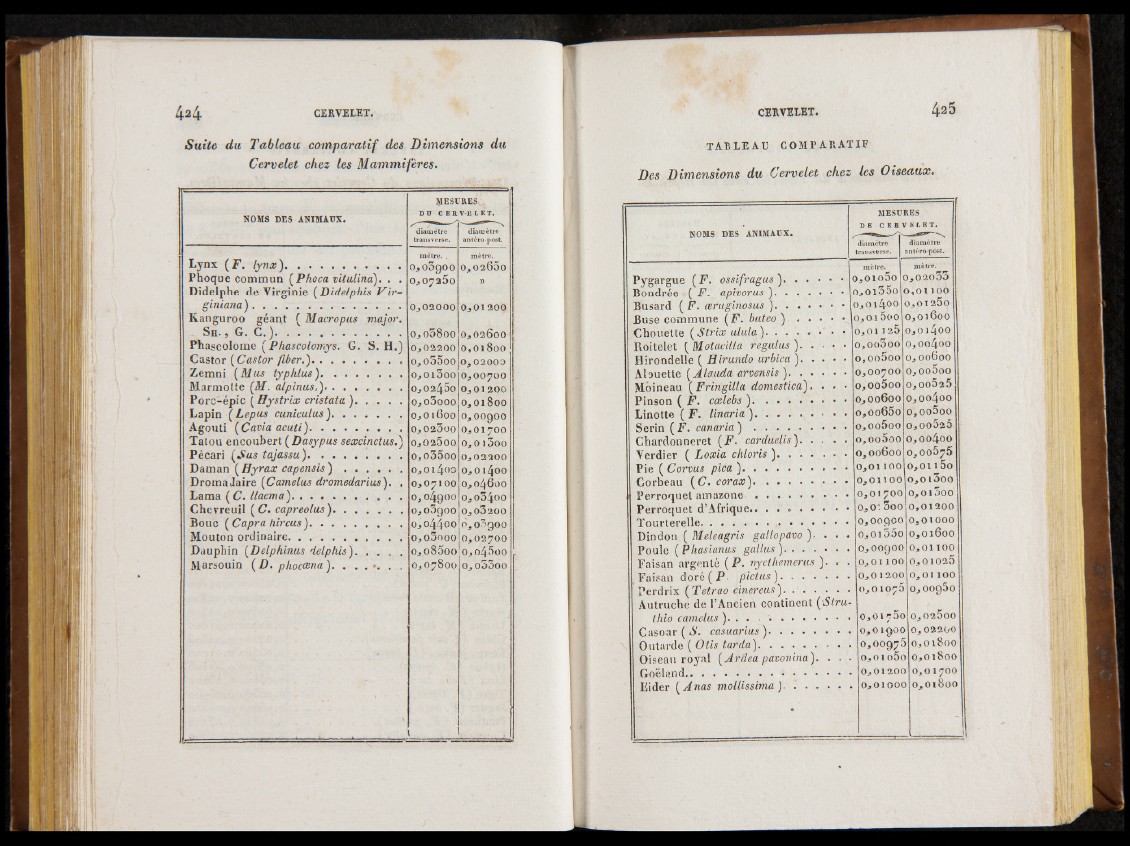 424 CERVELET.
Suite du Tableau comparatif des Dimensions du
Cervelet chez les Mammifères.
NOMS DES ANIMAUX.
MESURES
DU CERVELET.
diamètre transverse. diamètre antéro-post.
mètre. mètre.
Lynx (F. lynx). 0,03900 0,02650
Phoque commun (Phoca vitulina). 0,07250 »
Didelphe de Virginie (Didelphis Vir-
giniana). 0,02000 0,01200
Kanguroo géant (Macropus major.
SH., G. C.). 0,03800 0,02600
Phascolome (Phascolomys. G. S. H.) 0,02200 0,01800
Castor (Castor fiber.). 0,03500 0,02000
Zemni (Mus typhlus). 0,01300 0,00700
Marmotte (M. alpinus.). 0,02450 0,01200
Porc-épic (Hystrix cristata). 0,03000 0,01800
Lapin (Lepus cuniculus). 0,01600 0,00900
Agouti (Cavia acuti). 0,02300 0,01700
Tatou encoubert (Dasypus sexcinctus.) 0,02500 0,01300
Pécari (Sus tajassu). 0,03500 0,02200
Daman (Hyrax capensis) 0,01400 0,01400
Dromadaire (Camelus dromedarius). 0,07100 0,04600
Lama (C. llacma). 0,04900 0,03400
Chevreuil (C. capreolus). 0,03900 0,03200
Bouc (Capra hircus). 0,04400 0,03900
Mouton ordinaire. 0,03000 0,02700
Dauphin (Delphinus delphis). 0,08500 0,04500
Marsouin (D. phocœna). 0,07800 0,05500
CERVELET. 425
TABLEAU COMPARATIF
Des Dimensions du Cervelet chez les Oiseaux.
NOMS DES ANIMAUX.
MESURES
DE CERVELET.
diamètre transverse. diamètre antéro-post.
mètre. mètre.
Pygargue (F. ossifragus). 0,01050 0,02033
Bondrée (F. apivorus). 0,01350 0,01100
Busard (F. æruginosus). 0,01400 0,01250
Buse commune (F. buteo) 0,01500 0,01600
Chouette (Strix ulula). 0,01125 0,01400
Roitelet (Motacilla regulus). 0,00300 0,00400
Hirondelle (Hirundo urbica). 0,00500 0,00600
Alouette (Alauda arvensis). 0,00700 0,00500
Moineau (Fringilla domestica). 0,00500 0,00525
Pinson (F. cœlebs). 0,00600 0,00400
Linotte (F. linaria). 0,00650 0,00500
Serin (F. canaria) 0,00500 0,00525
Chardonneret (F. carduelis). 0,00500 0,00400
Verdier (Loxia chloris). 0,00600 0,00575
Pie (Corvus pica). 0,01100 0,01150
Corbeau (C. corax). 0,01100 0,01300
Perroquet amazone 0,01700 0,01300
Perroquet d'Afrique. 0,01300 0,01200
Tourterelle. 0,00900 0,01000
Dindon (Meleagris gallopavo). 0,01350 0,01600
Poule (Phasianus gallus). 0,00900 0,01100
Faisan argenté (P. nycthemerus). 0,01100 0,01025
Faisan doré (P. pictus). 0,01200 0,01100
Perdrix (Tetrao cinereus). 0,01075 0,00950
Autruche de l'Ancien continent (Stru-
thio camelus). 0,01750 0,02500
Casoar (S. casuarius). 0,01900 0,02200
Outarde (Otis tarda). 0,00975 0,01800
Oiseau royal (Ardea pavonina). 0,01050 0,01800
Goëland. 0,01200 0,01700
Eider (Anas mollissima). 0,01000 0,01800